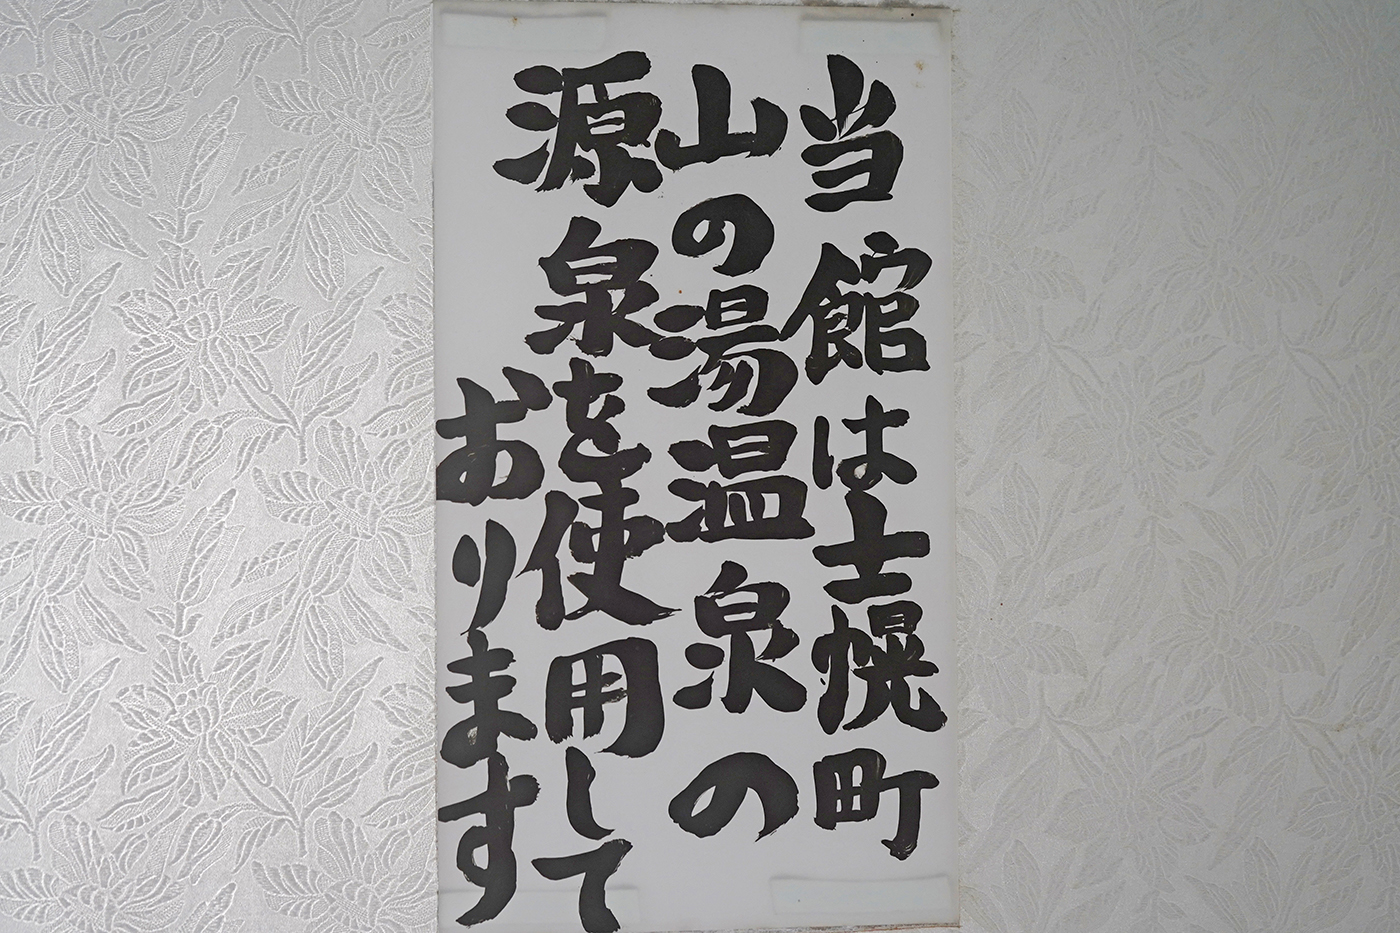 当館は士幌町
山の湯温泉の
源泉を使用して
おります